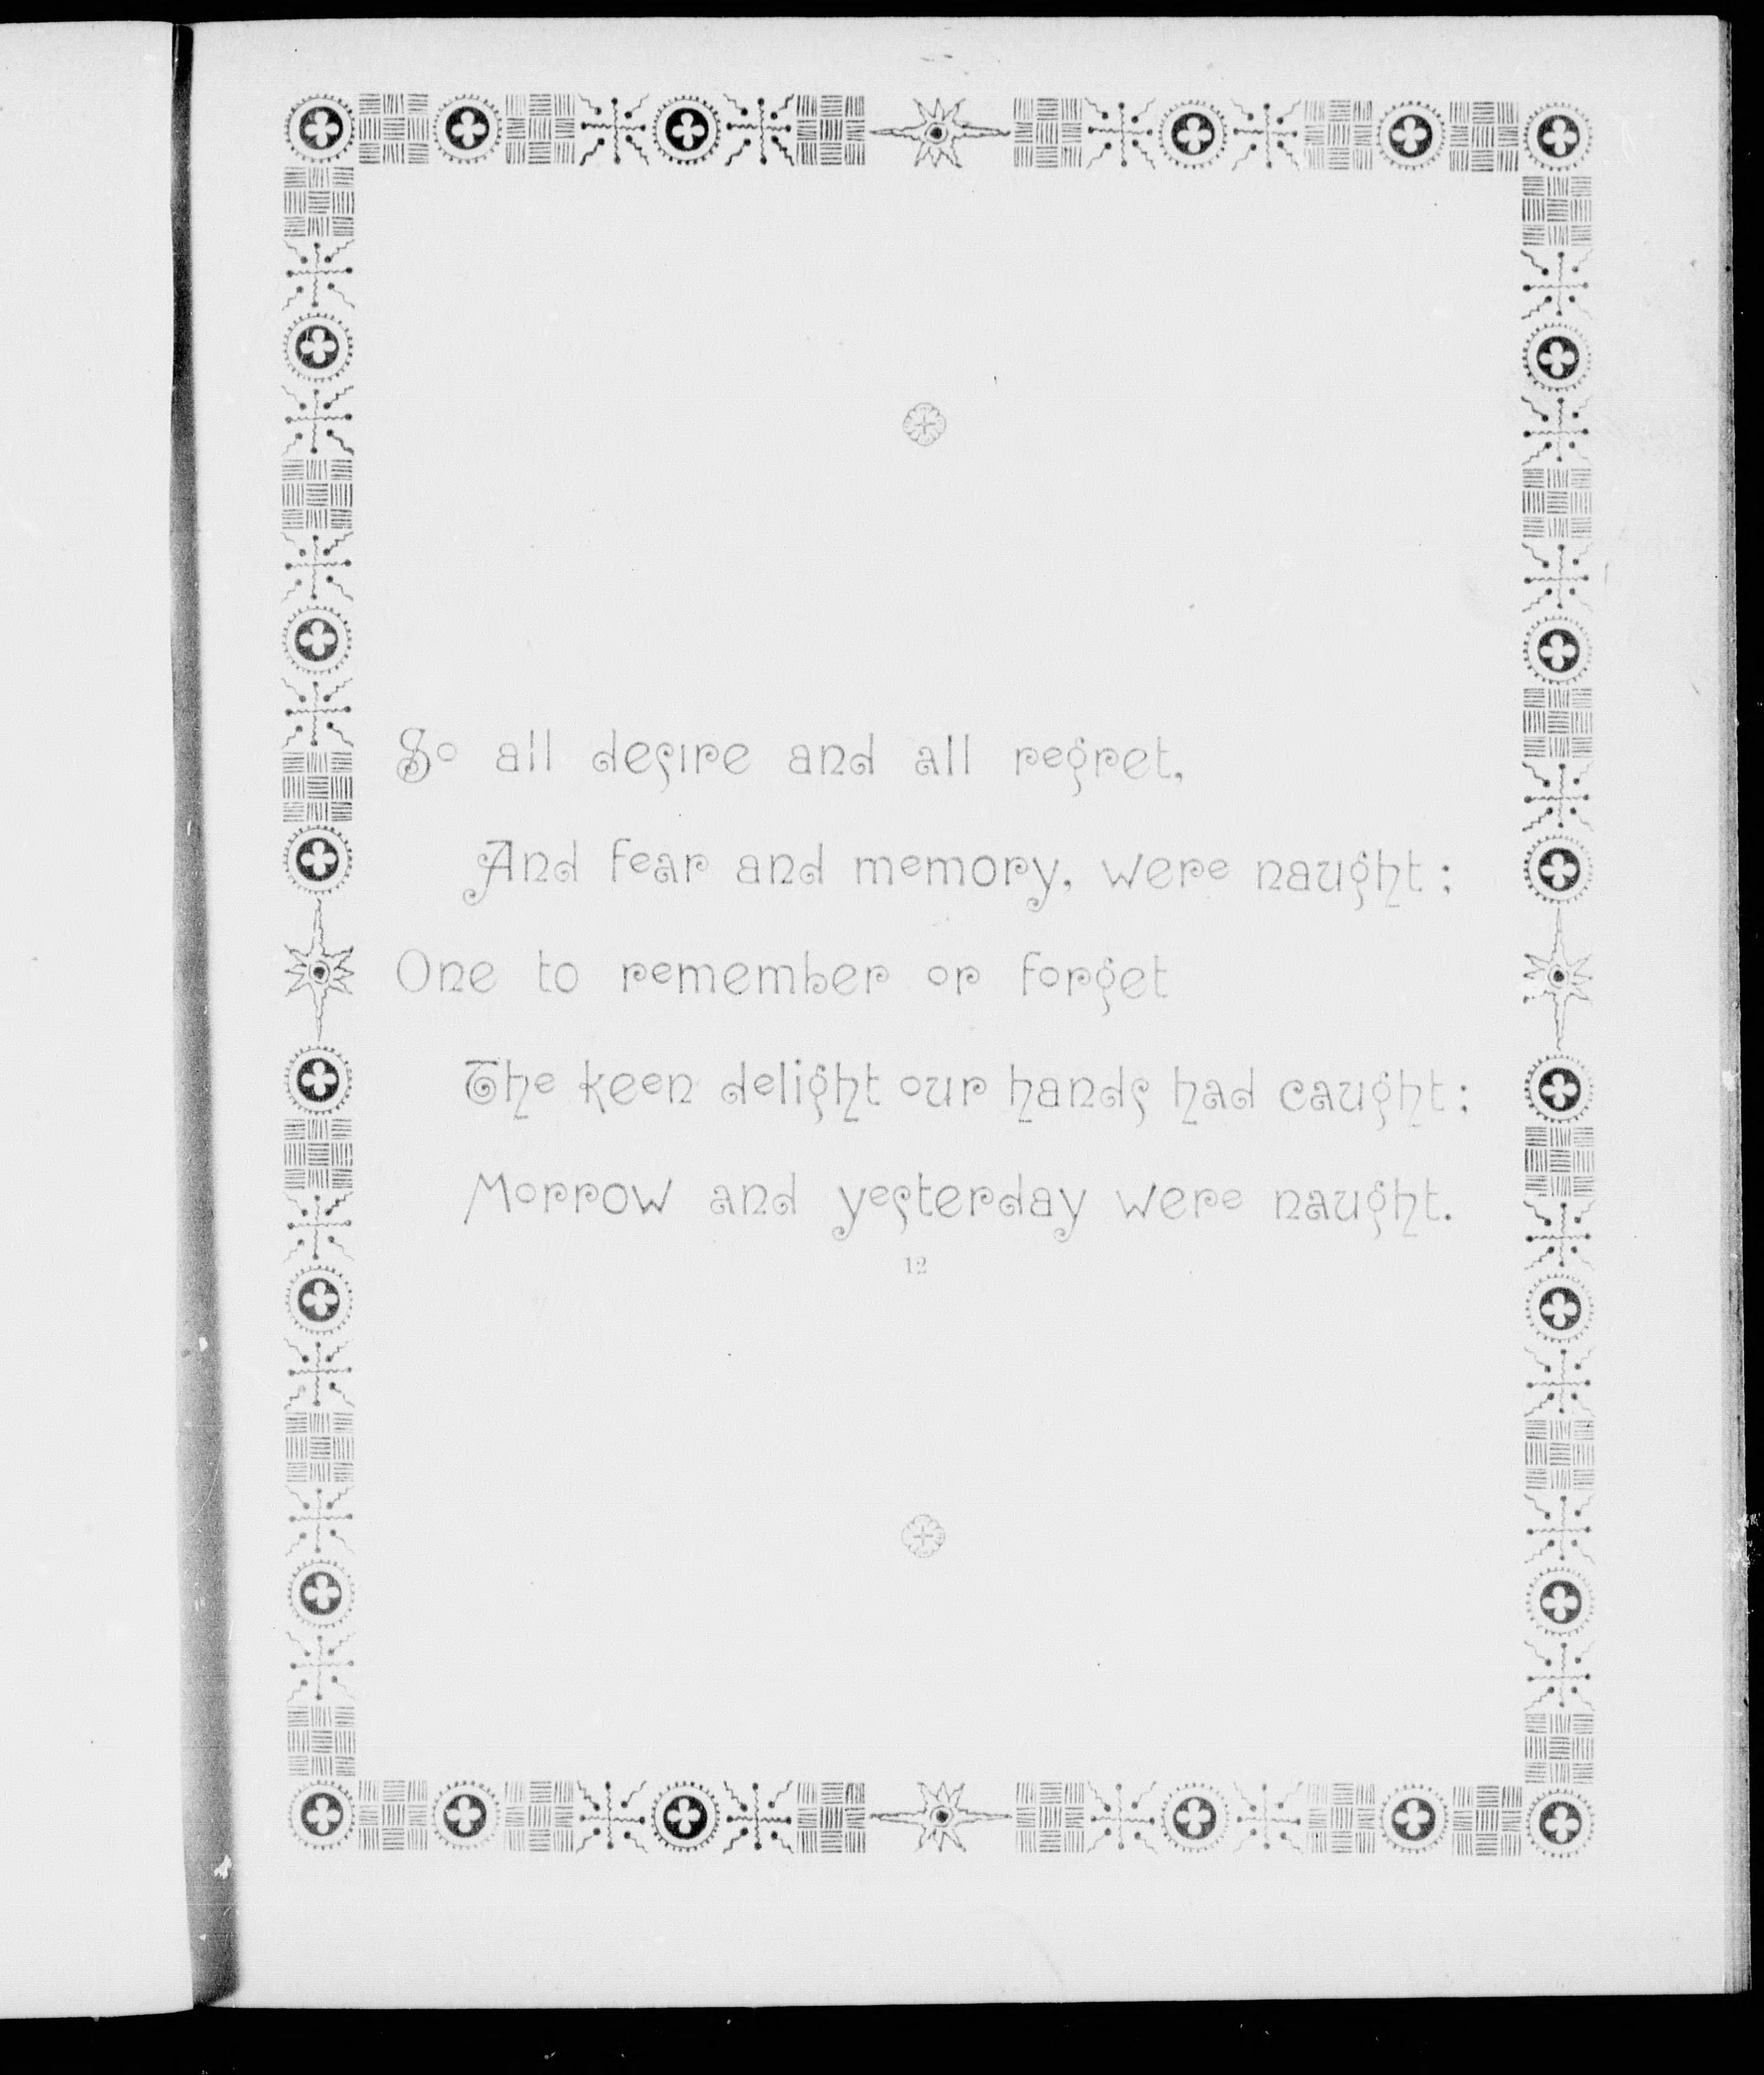 So all desire and all regret,
And fear and memory, were naught;
One to remember or forget
The keen delight our hands had caught;
Morrow and yesterday were naught.
12